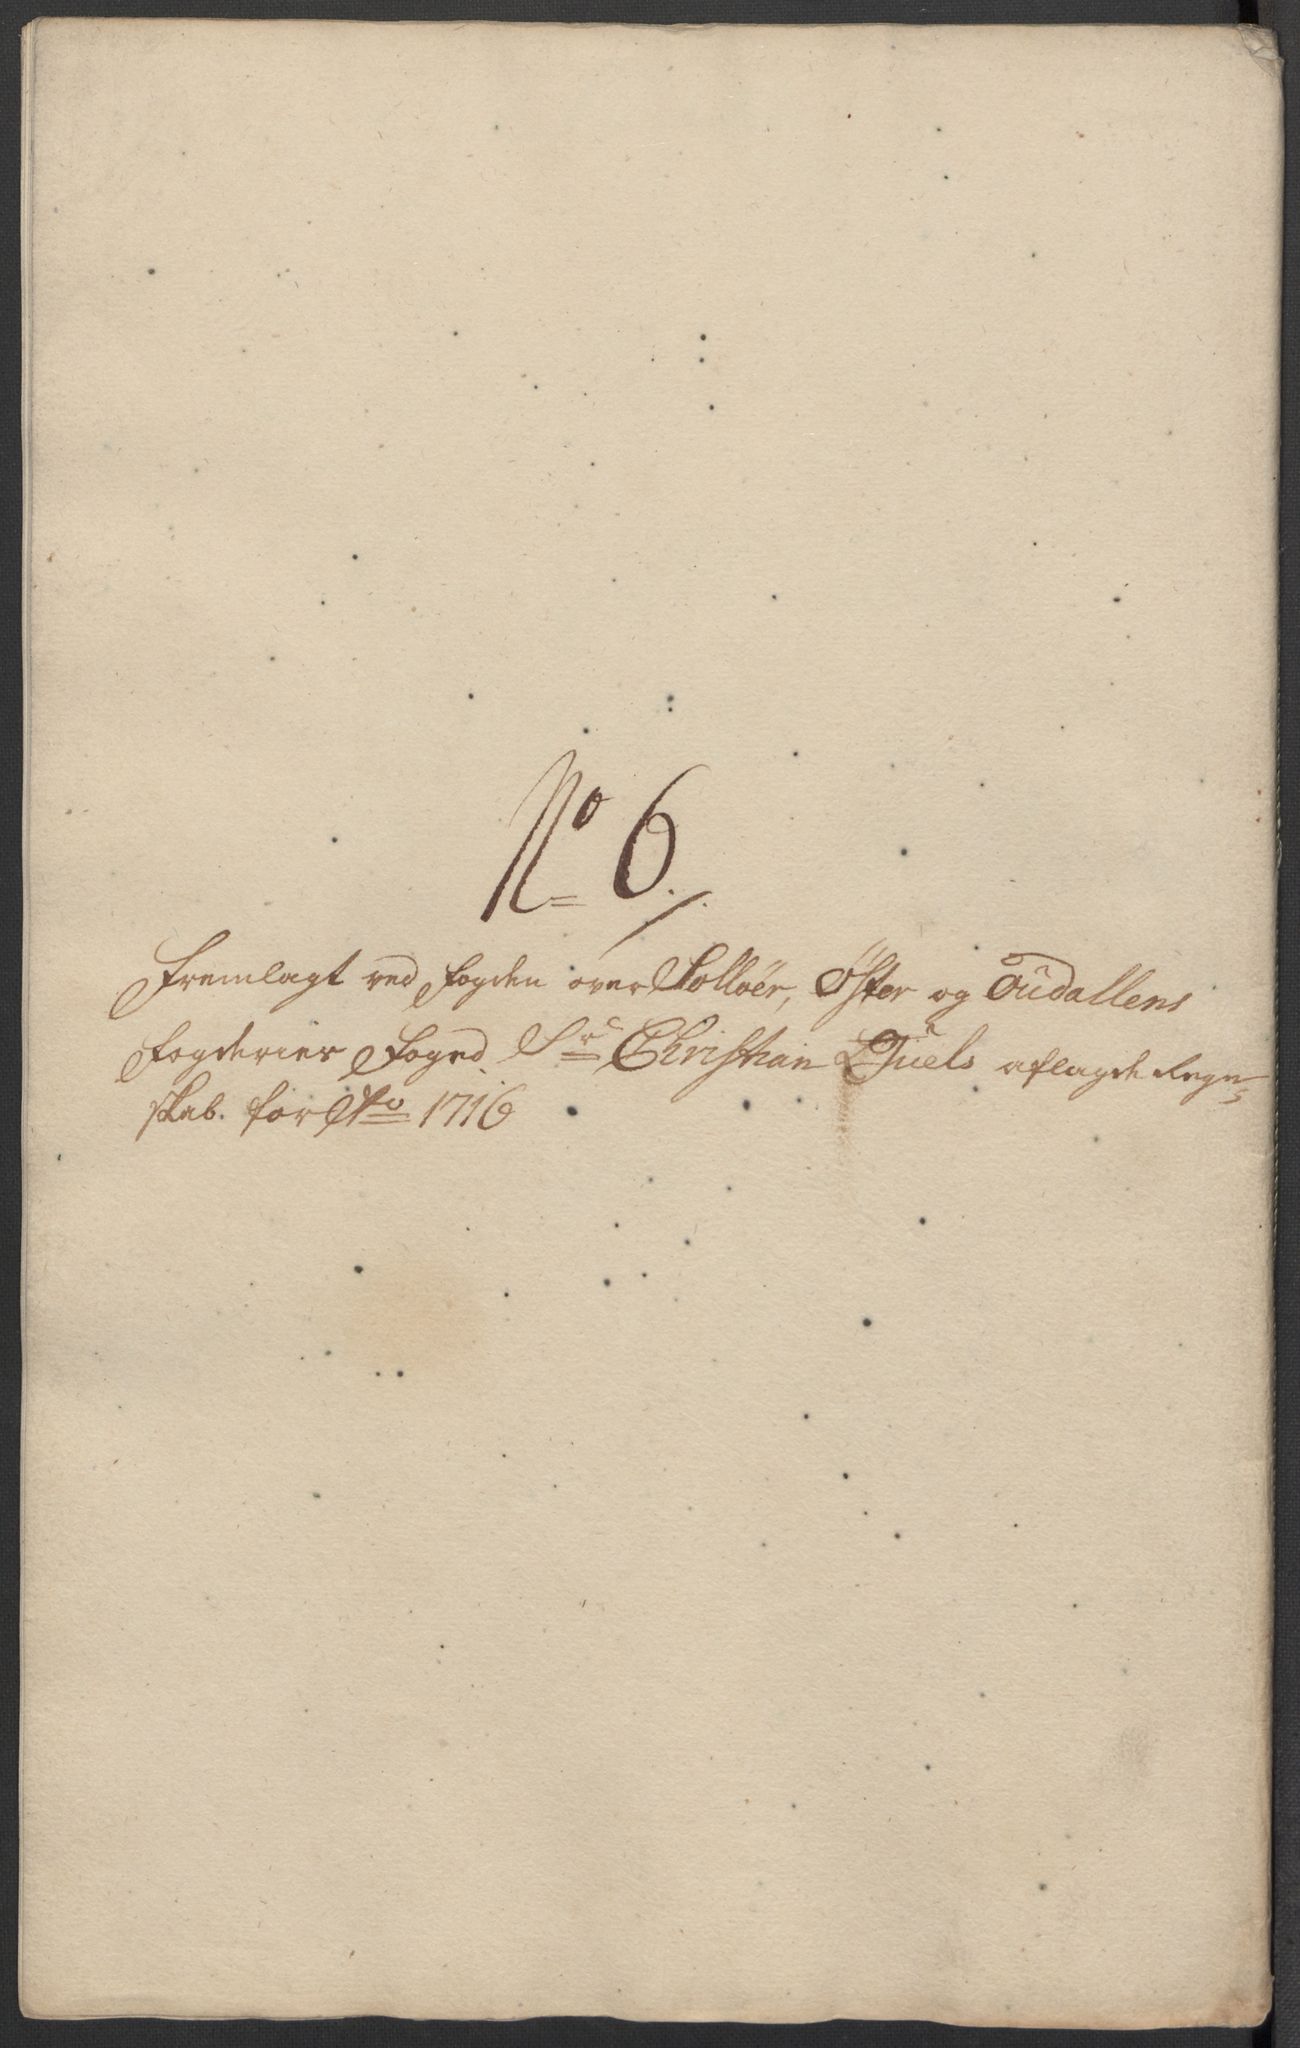 No 6.
Fremlagt ved fogden over Solløer, Øster og Oudallens
fogderier Foged Sr Christian Juels aflagde Regn-
skab. for Ao 1716